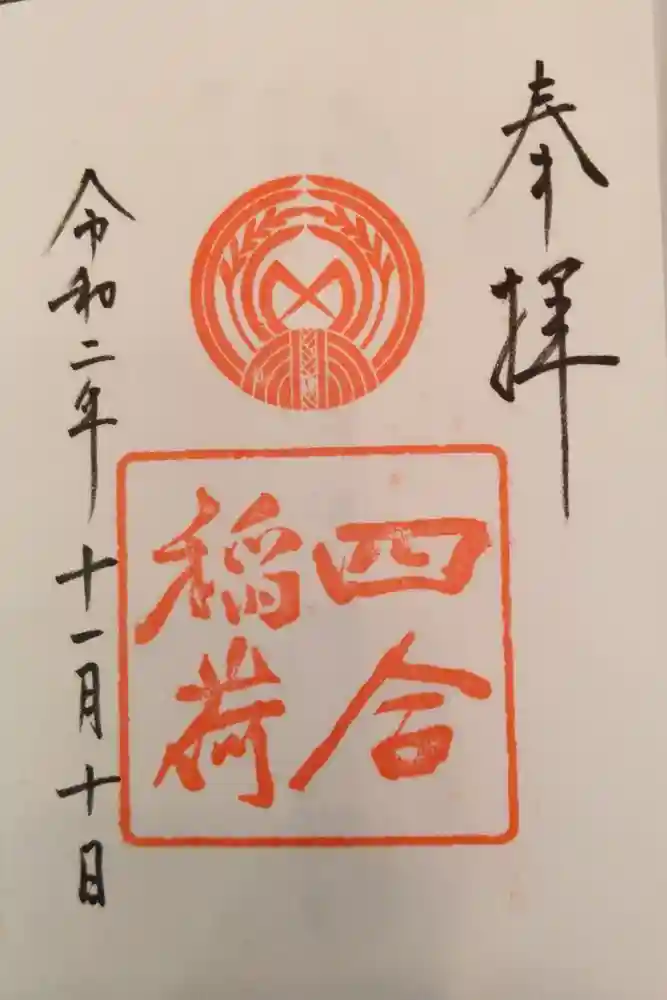 奉拝
四合
稲荷
令和二年十一月十日